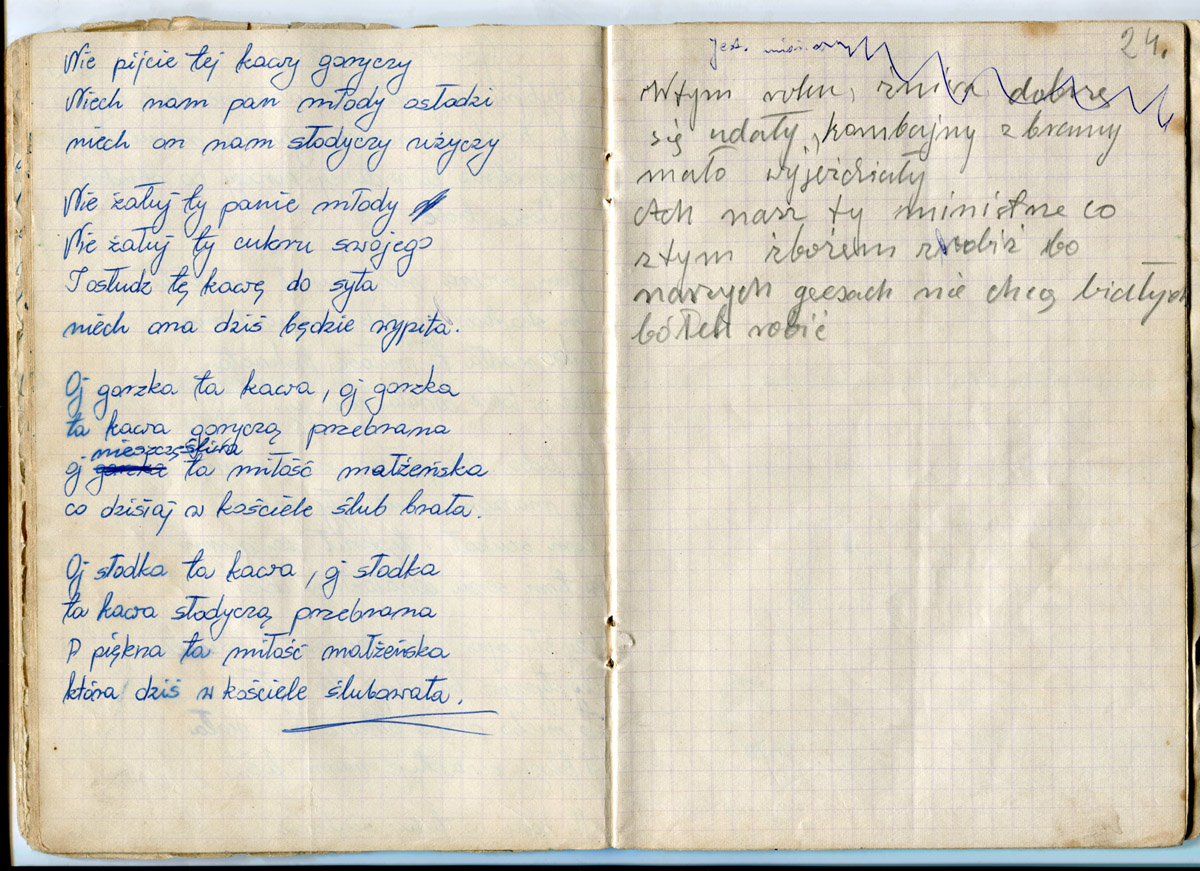 Nie pijcie tej kawy goryczy
Niech nam pan młody osłodzi
niech on nam słodyczy użyczy
Nie żałuj ty panie młody
Nie żałuj ty cukru swojego
I osłudz tę kawę do syta
niech ona dziś będzie wypita.
Oj gorzka ta kawa, oj gorzka
ta kawa goryczą przebrana
nieszczęśliwa
oj gorzka ta miłość małżeńska
co dzisiaj w kościele ślub brała.
Oj słodka ta kawa, oj słodka
ta kawa słodyczą przebrana
P piękna ta miłość małżeńska
która dziś w kościele ślubowała.
24.
Jest
Wtym roku, żniva dobrze
się udały, kombajny z bramy
mało wyjeżdziały
Ach nasz ty ministrze co
ztym zbożem zrobić bo
naszych geesach nie chcą białych
bółek robić